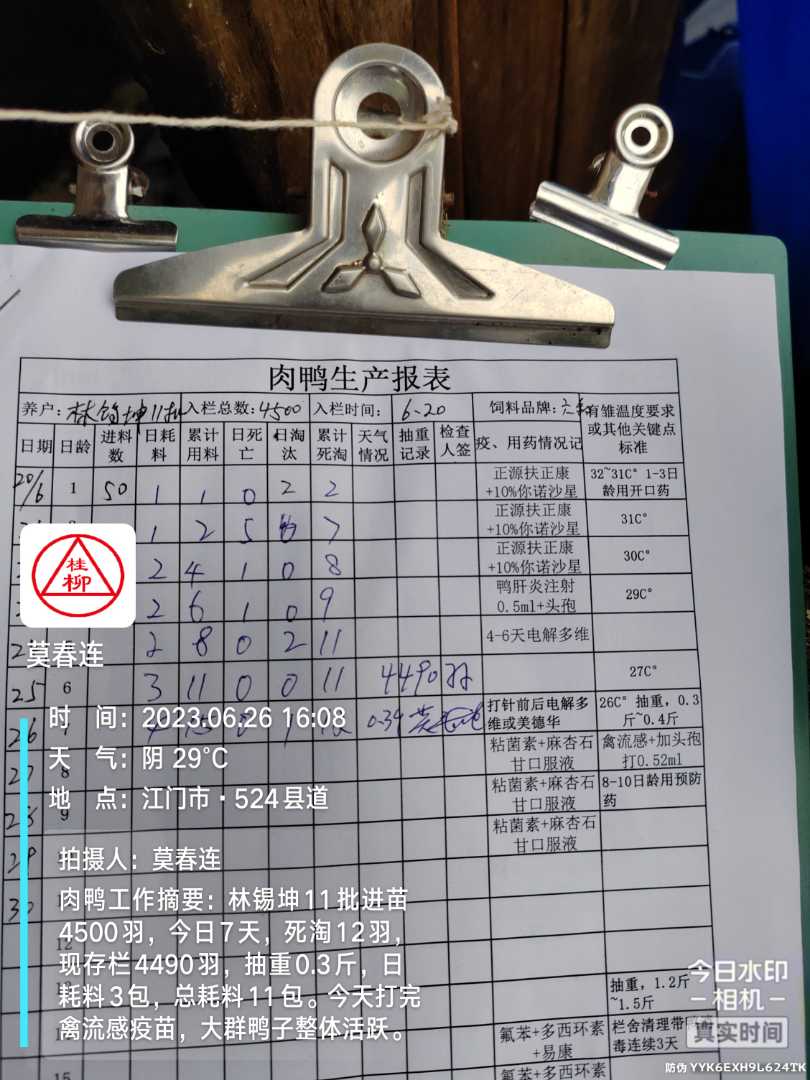 肉鸭生产报表
养户: 林锡坤11批 入栏总数: 4500 入栏时间: 6-20 饲料品牌: 有雏温度要求或其他关键点标准
日期 日龄 进料数 日耗料 累计用料 日死亡 日淘汰 累计死淘 天气情况 抽重记录 检查人签 疫、用药情况记
20/6 1 50 1 1 0 2 2 正源扶正康+10%你诺沙星 32~31C° 1-3日龄用开口药
1 2 5 7 正源扶正康+10%你诺沙星 31C°
2 4 1 0 8 正源扶正康+10%你诺沙星 30C°
2 6 1 0 9 鸭肝炎注射0.5ml+头孢 29C°
2 8 0 2 11 4-6天电解多维
25 6 3 11 0 0 11 4490羽 27C°
26 打针前后电解多维或美德华 26C° 抽重，0.3斤~0.4斤
27 8 粘菌素+麻杏石甘口服液 禽流感+加头孢打0.52ml
28 9 粘菌素+麻杏石甘口服液 8-10日龄用预防药
29 粘菌素+麻杏石甘口服液
30
12
抽重，1.2斤~1.5斤
氟苯+多西环素+易康 栏舍清理带
毒连续3天
15 氟苯+多西环素
桂
柳
莫春连
时 间: 2023.06.26 16:08
天 气: 阴 29°C
地 点: 江门市·524县道
拍摄人: 莫春连
肉鸭工作摘要: 林锡坤11批进苗
4500羽，今日7天，死淘12羽，
现存栏4490羽，抽重0.3斤，日
耗料3包，总耗料11包。今天打完
禽流感疫苗，大群鸭子整体活跃。
今日水印
相机
真实时间
防伪 YYK6EXH9L624TK